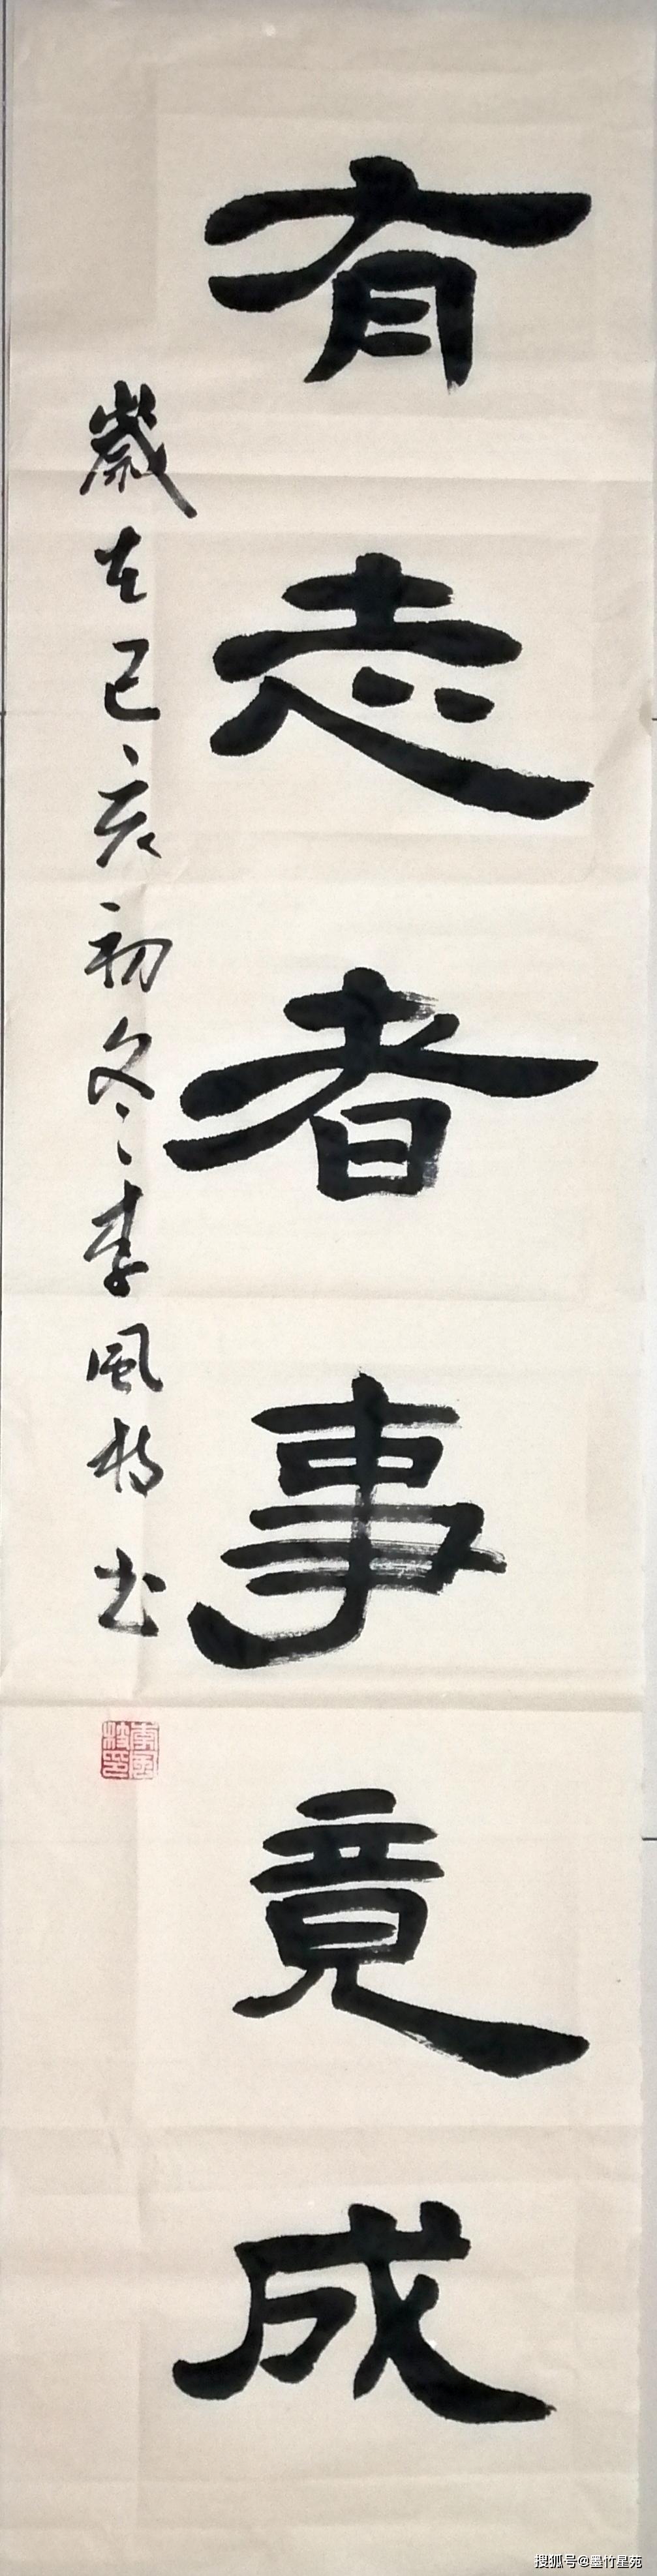 有志者事竟成
歲在己亥初冬李風梅书
搜狐号@墨竹星苑